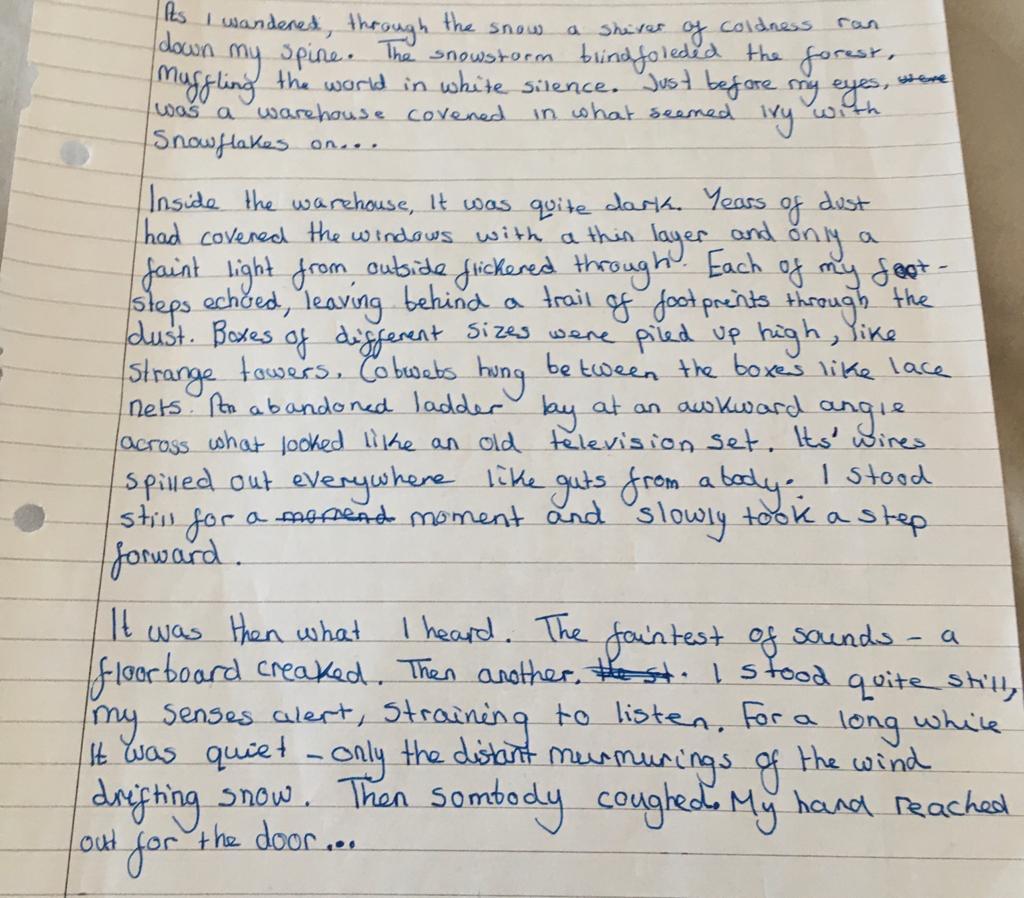 As I wandered, through the snow a shiver of coldness ran
down my spine. The snowstorm blindfoleded the forest,
Muffling the world in white silence. Just before my eyes, were
was a warehouse covered in what seemed ivy with
Snowflakes on...
Inside the warehouse, It was quite dark. Years of dust
had covered the windows with a thin layer and only a
faint light from outside flickered through. Each of my foot-
steps echoed, leaving behind a trail of footprints through the
dust. Boxes of different sizes were piled up high, like
strange towers. Cobwebs hung between the boxes like lace
nets. An abandoned ladder lay at an awkward angle
across what looked like an old television set. Its' wires
spilled out everywhere like guts from a body. I stood
still for a momend moment and slowly took a step
forward.
It was then what I heard. The faintest of sounds - a
floorboard creaked. Then another. the st. I stood quite still,
my senses alert, straining to listen. For a long while
It was quiet - only the distant murmurings of the wind
drifting snow. Then sombody coughed. My hand reached
out for the door...